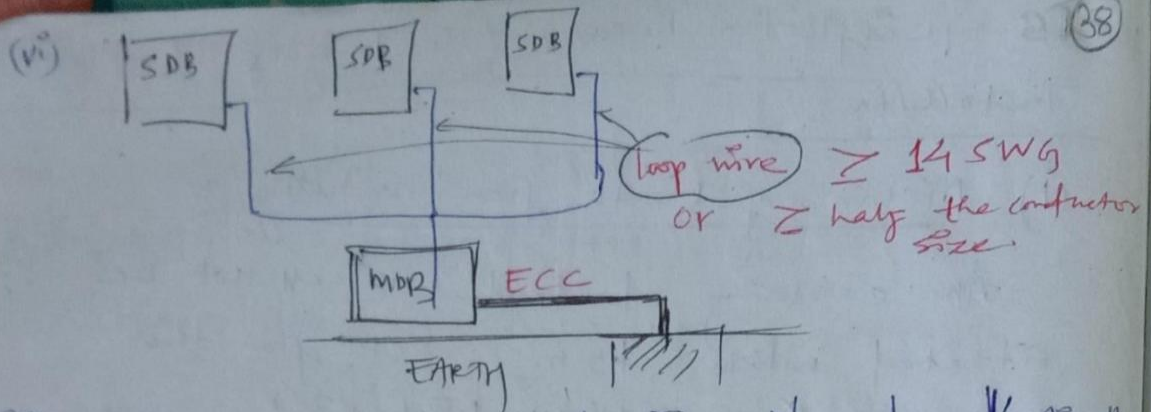 38
(vi)
SDB
SDB
SDB
loop wire ≥ 14 SWG
or ≥ half the conductor
size.
MDB ECC
EARTH